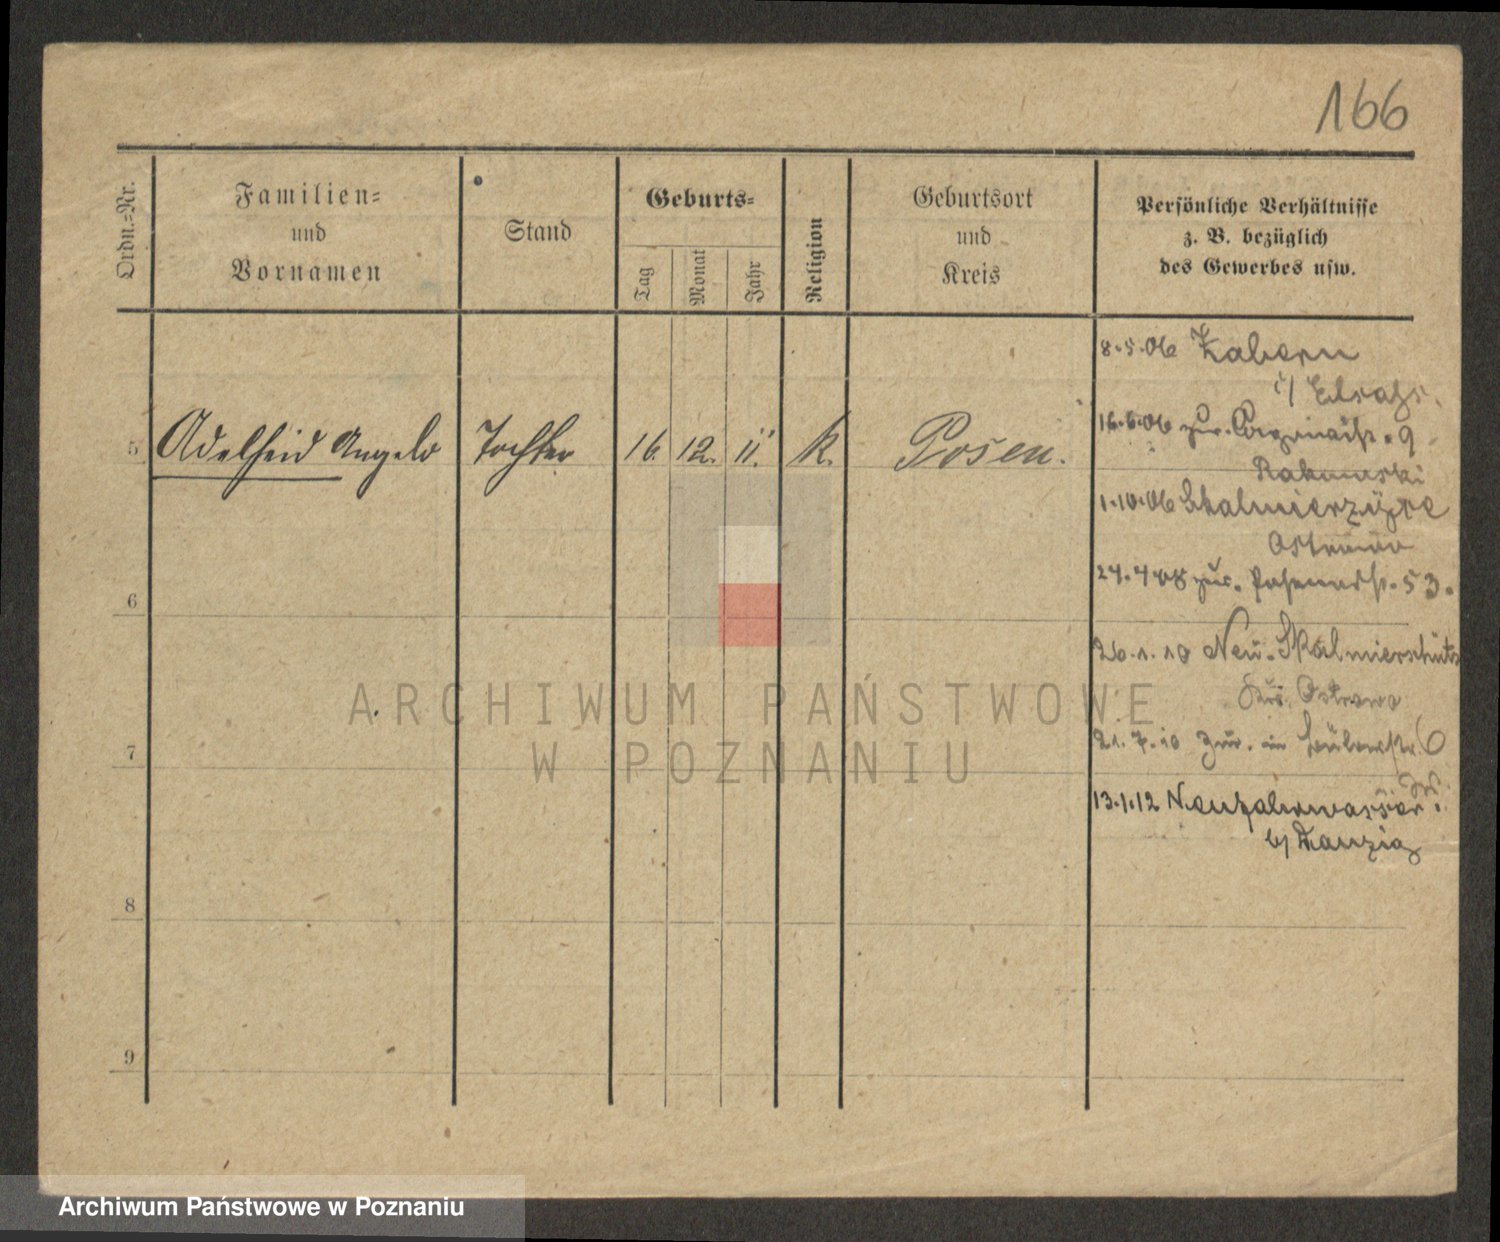 166
Ordn.=Nr.
Familien=
und
Vornamen
Stand
Geburts=
Tag
Monat
Jahr
Religion
Geburtsort
und
Kreis
Persönliche Verhältnisse
z. B. bezüglich
des Gewerbes usw.
8.5.06 Zabern
i/ Elsaß.
5 Adelheid Angela Tochter 16. 12. 11. k. Posen.
16.6.06 zur. 9
1.10.06 Skalmierzyce
Ostrowo
24.4.08 zur. 53.
6
26.1.10 Neu. Skalmierschütz
Ostrowo
21.7.10 zur. in 6
7
13.1.12 Neufahrwasser
b/ Danzig
8
9
ARCHIWUM PAŃSTWOWE
W POZNANIU
Archiwum Państwowe w Poznaniu